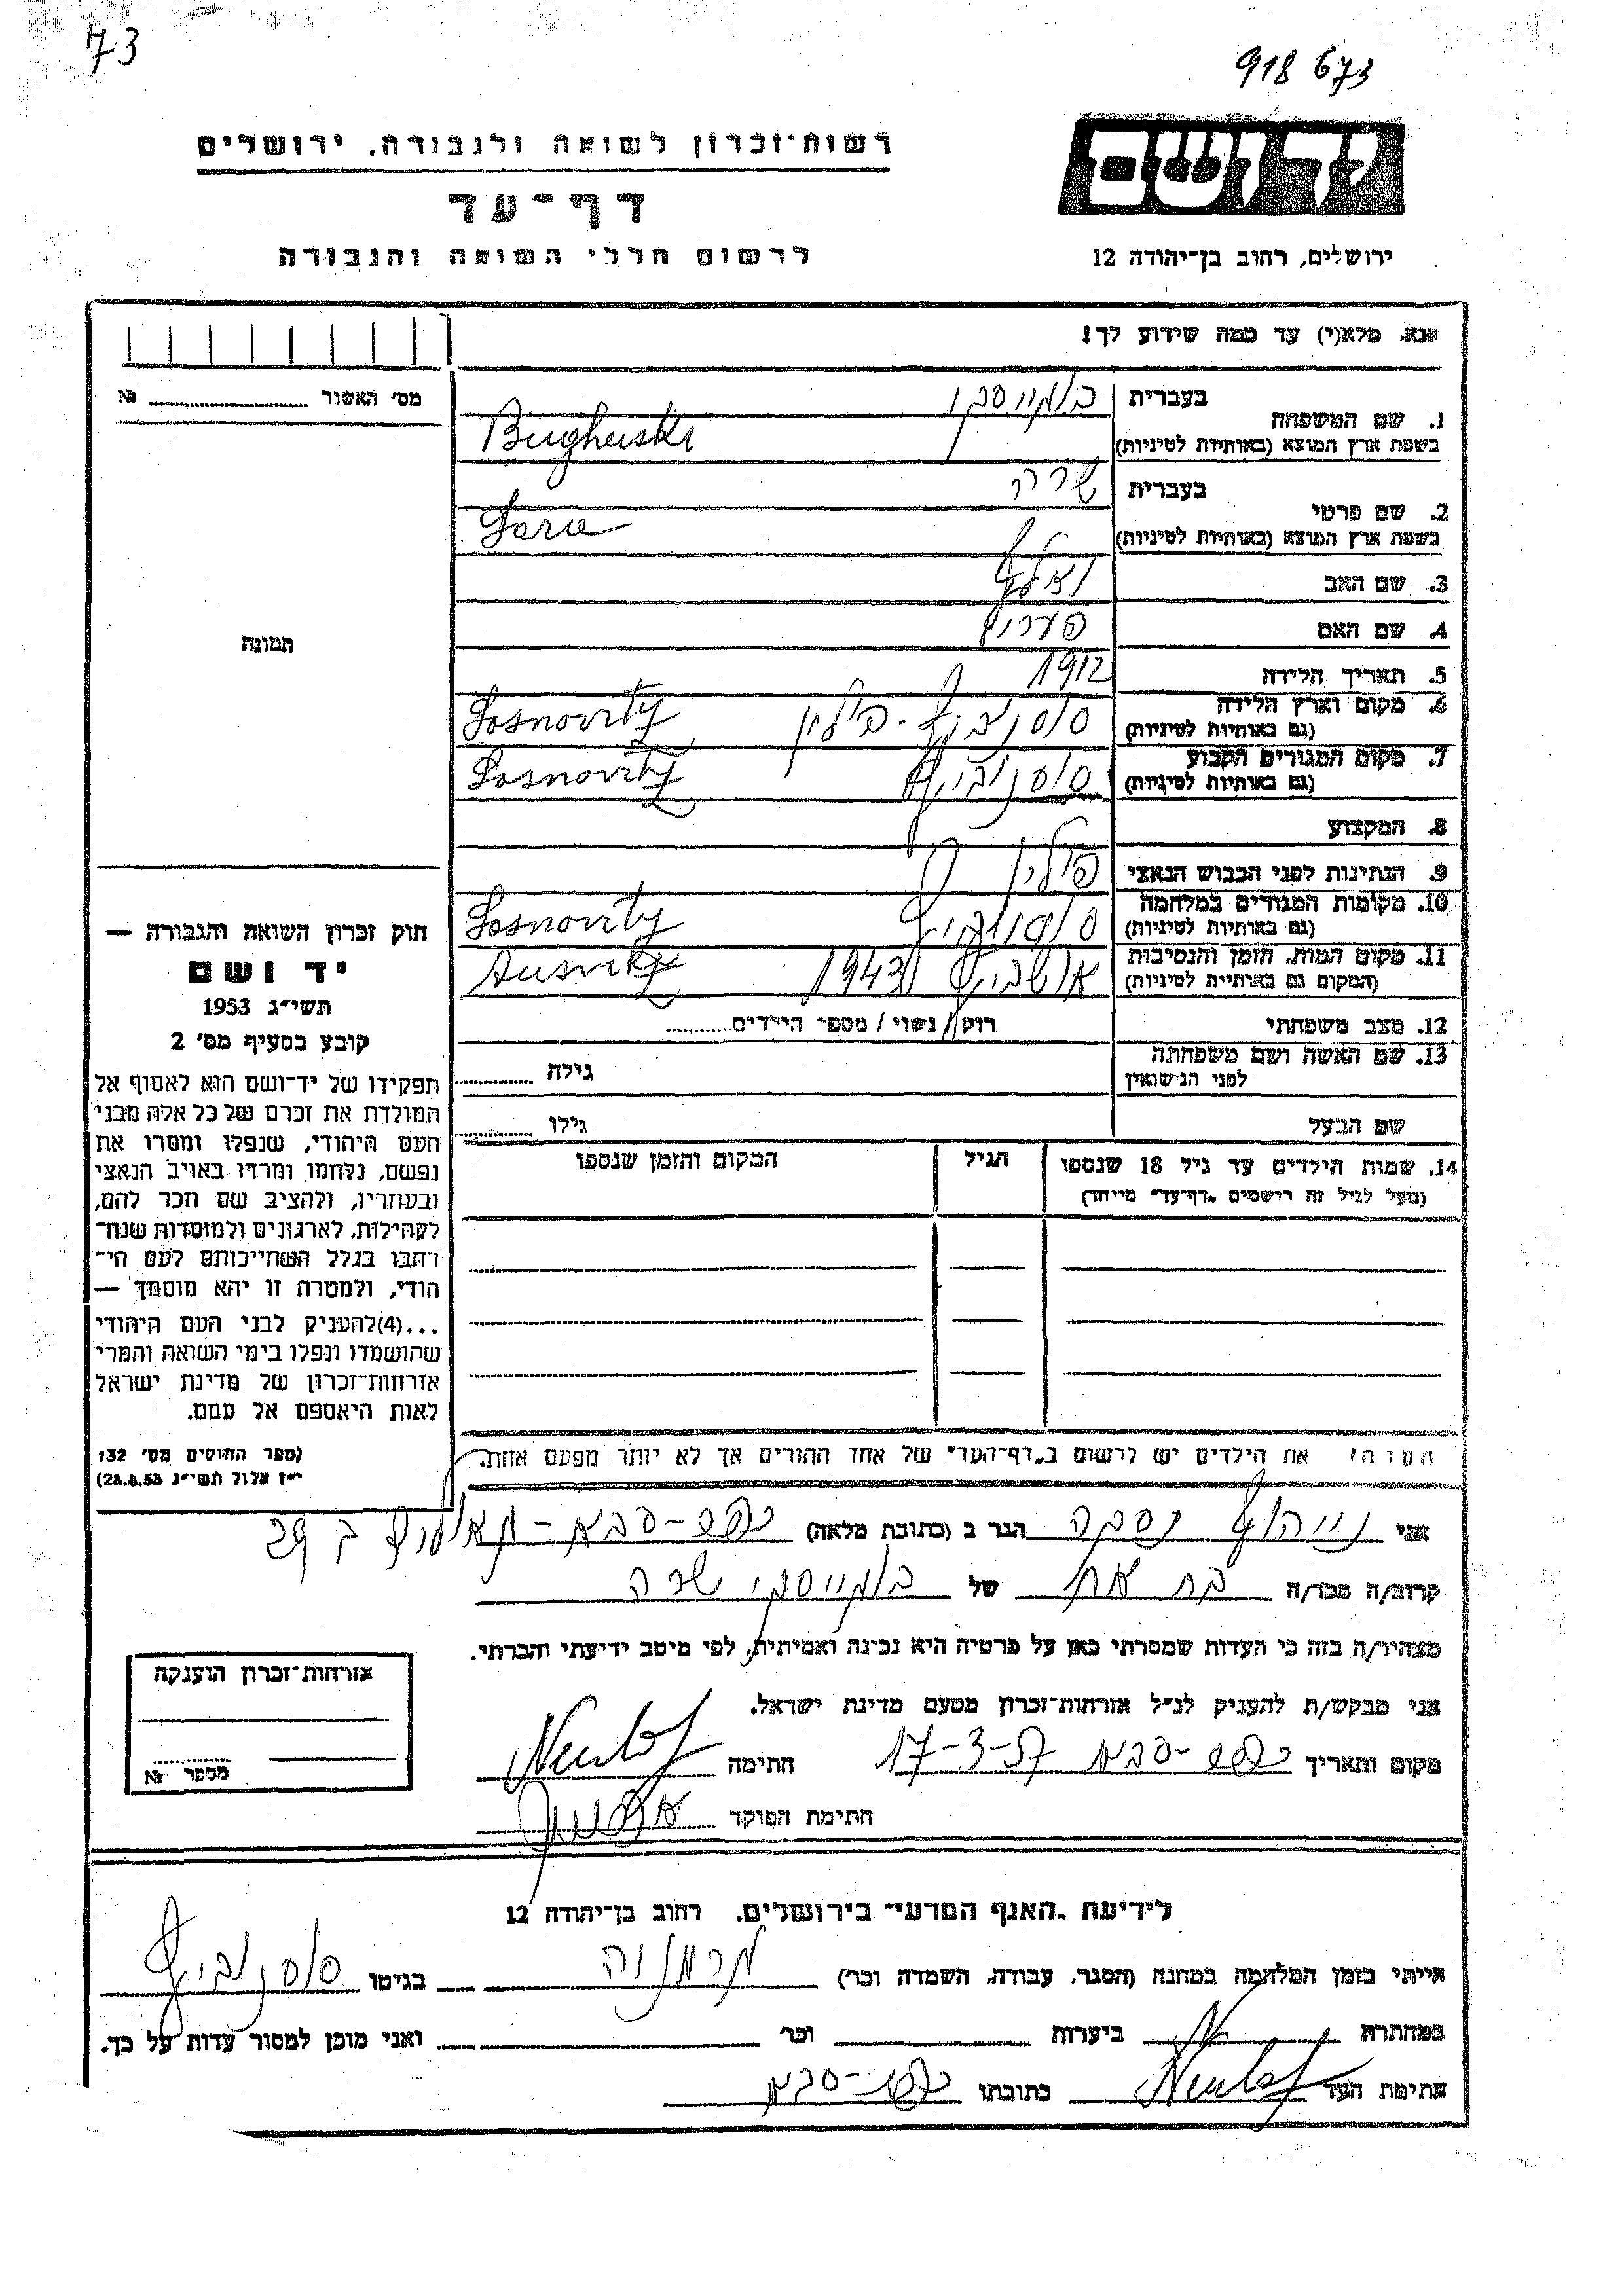 73
918 673
רשות־זכרון לשואה ולגבורה, ירושלים
יד ושם
דף־עד
לרשום חללי השואה והגבורה
ירושלים, רחוב בן־יהודה 12
אנא, מלא(י) עד כמה שידוע לך!
מס׳ האשור № 
1. שם המשפחה בעברית
בשפת ארץ המוצא (באותיות לטיניות) Bugheiski
2. שם פרטי בעברית שרה
בשפת ארץ המוצא (באותיות לטיניות) Sara
3. שם האב
4. שם האם
תמונה
5. תאריך הלידה 1912
6. מקום וארץ הלידה (גם באותיות לטיניות) סוסנוביץ. פולין Sosnovitz
7. מקום המגורים הקבוע (גם באותיות לטיניות) סוסנוביץ Sosnovitz
8. המקצוע
9. הנתינות לפני הכבוש הנאצי פולין
10. מקומות המגורים במלחמה (גם באותיות לטיניות) סוסנוביץ Sosnovitz
11. מקום המות, הזמן והנסיבות (המקום גם באותיות לטיניות) אושביץ 1943 Ausvitz
12. מצב משפחתי רוק / נשוי / מספר הילדים
13. שם האשה ושם משפחתה לפני הנישואין גילה
שם הבעל גילו
14. שמות הילדים עד גיל 18 שנספו הגיל המקום והזמן שנספו
(מעל לגיל זה רושמים „דף־עד” מייחד)
חוק זכרון השואה והגבורה —
יד ושם
תשי״ג 1953
קובע בסעיף מס׳ 2
תפקידו של יד־ושם הוא לאסוף אל
המולדת את זכרם של כל אלה מבני
העם היהודי, שנפלו ומסרו את
נפשם, נלחמו ומרדו באויב הנאצי
ובעוזריו, ולהציב שם וזכר להם,
לקהילות, לארגונים ולמוסדות שנח־
רבו בגלל השתייכותם לעם הי־
הודי, ולמטרה זו יהא מוסמך —
...(4)להעניק לבני העם היהודי
שהושמדו ונפלו בימי השואה והמרי
אזרחות־זכרון של מדינת ישראל
לאות היאספם אל עמם.
(ספר החוקים מס׳ 132
י״ז אלול תשי״ג 28.8.53)
הערה: את הילדים יש לרשום ב„דף־העד” של אחד ההורים אך לא יותר מפעם אחת.
אני נייהוף הגר ב (כתובת מלאה) כפר-סבא-
קרוב/ה מכר/ה בת אח של שרה
מצהיר/ה בזה כי העדות שמסרתי כאן על פרטיה היא נכונה ואמיתית, לפי מיטב ידיעתי והכרתי.
אני מבקש/ת להעניק לנ״ל אזרחות־זכרון מטעם מדינת ישראל.
מקום ותאריך כפר-סבא 17-3-57 חתימה
חתימת הפוקד
אזרחות־זכרון הוענקה
מספר №
לידיעת „האגף המדעי” בירושלים, רחוב בן־יהודה 12
הייתי בזמן המלחמה במחנה (הסגר, עבודה, השמדה וכו׳) בגיטו סוסנוביץ
במחתרת ביערות וכו׳ ואני מוכן למסור עדות על כך.
חתימת העד כתובתו כפר-סבא